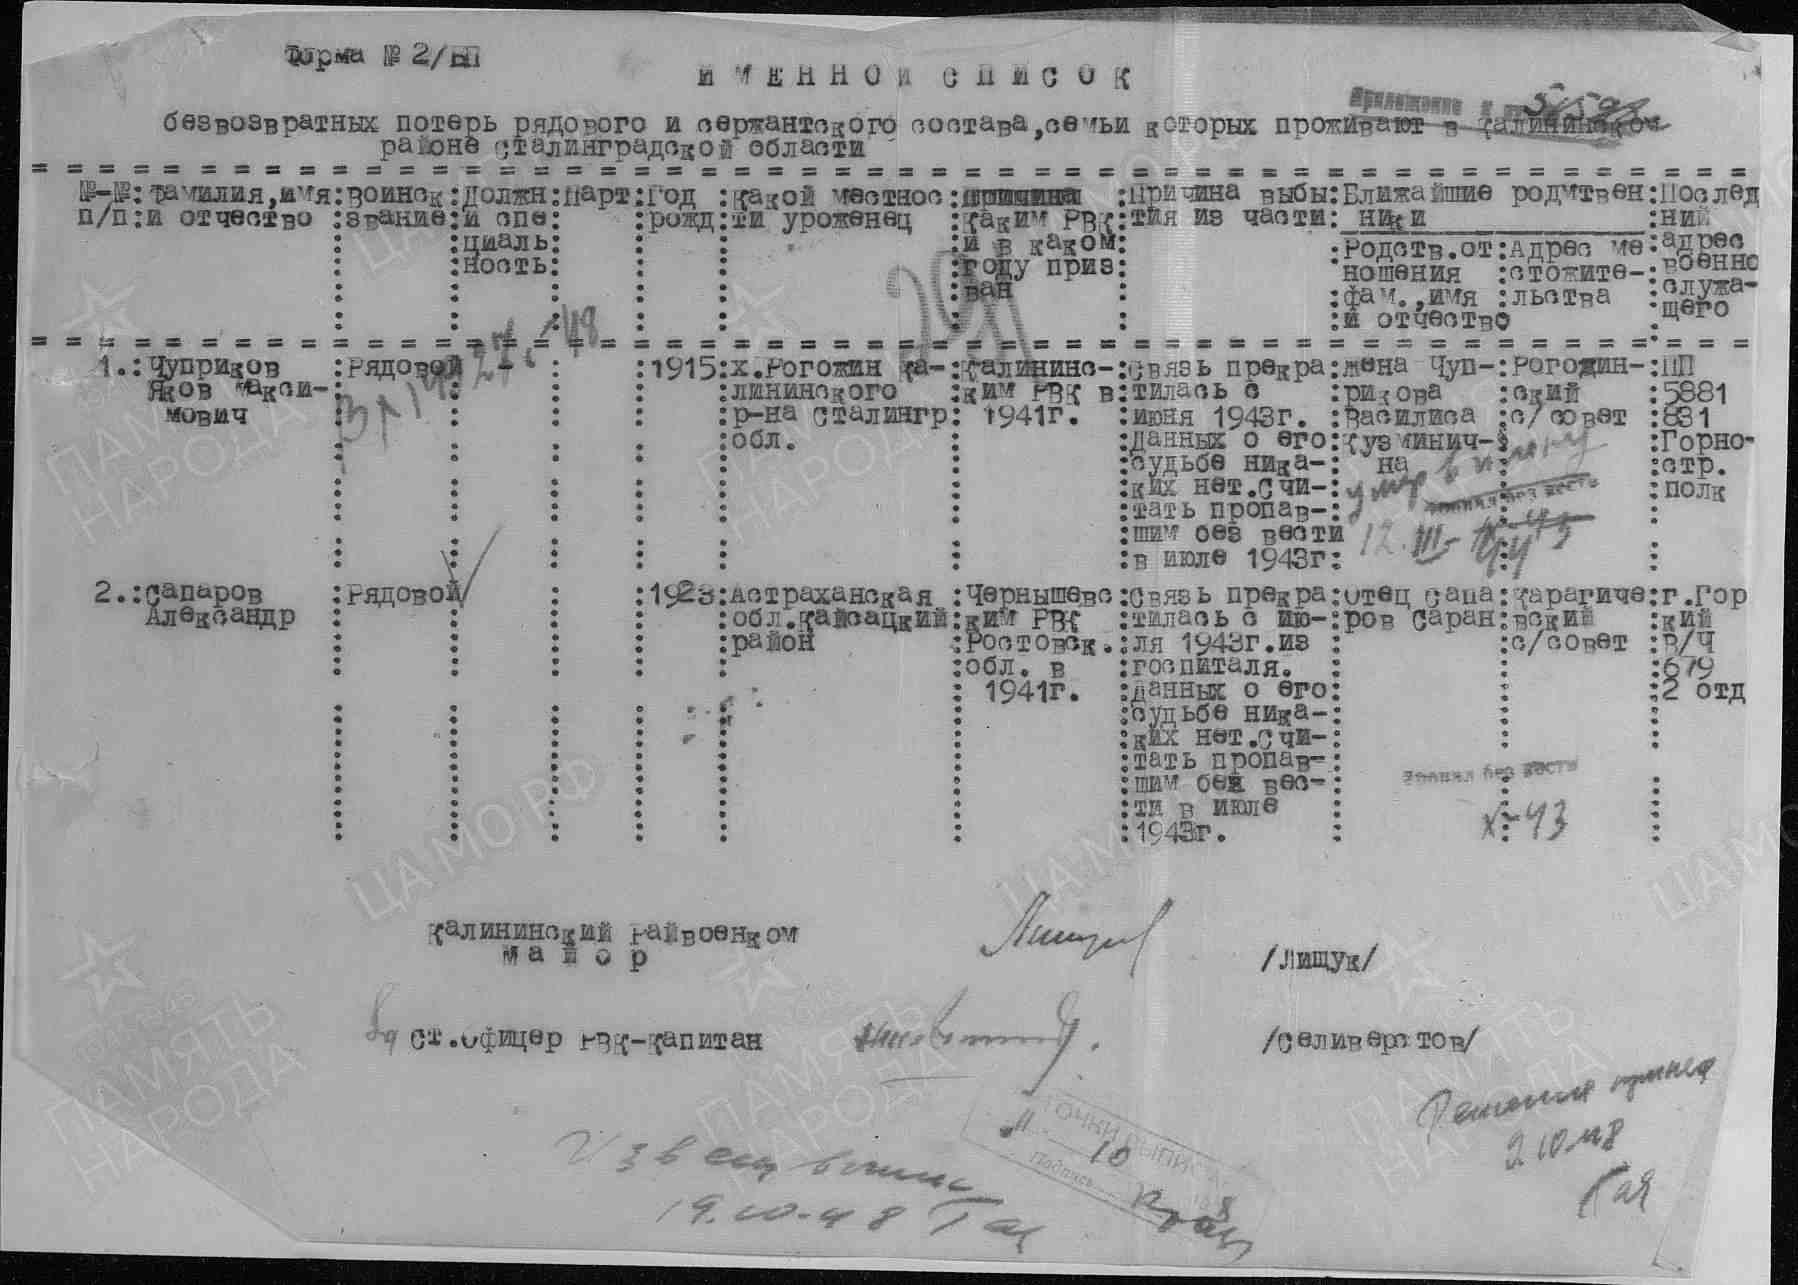 Форма № 2/БП
ИМЕННОЙ СПИСОК
Приложение
безвозвратных потерь рядового и сержантского состава,семьи которых проживают в Калининском
районе Сталинградской области
№-№ п/п
Фамилия,имя и отчество
Воинск звание
Должн и спе циаль ность
Парт
Год рожд
Какой местнос ти уроженец
Каким РВК и в каком году приз ван
Причина выбы тия из части
Ближайшие родмтвен ники
Родств.от ношения фам.,имя и отчество
Адрес ме стожите- льства
Послед ний адрес военно служа- щего
1.
Чуприков
Яков Макси-
мович
Рядовой
-
1915
х.Рогожин Ка-
лининского
р-на Сталингр
обл.
Калининс-
ким РВК в
1941г.
Связь прекра
тилась с
июня 1943г.
Данных о его
судьбе ника-
ких нет.Счи-
тать пропав-
шим без вести
в июле 1943г
жена Чуп-
рикова
Василиса
Кузминич-
на
Рогожин-
ский
с/совет
ПП
5881
831
Горно-
стр.
полк
умер в плену
12.III-
44
2.
Сапаров
Александр
Рядовой
1923
Астраханская
обл.Кайсацкий
район
Чернышевс
ким РВК
Ростовск.
обл. в
1941г.
Связь прекра
тилась с ию-
ля 1943г.из
госпиталя.
Данных о его
судьбе ника-
ких нет.Счи-
тать пропав-
шим без вес-
ти в июле
1943г.
Отец Сапа
ров Саран
Карагиче
вский
с/совет
г.Гор
кий
В/Ч
679
2 отд
пропал без вести
X-43
Калининский Райвоенком
Майор
/Лищук/
Ст.Офицер РВК-Капитан
/Селиверстов/
19.10-48
2.10.48
10
Подпись
ПАМЯТЬ
НАРОДА
ЦАМО РФ